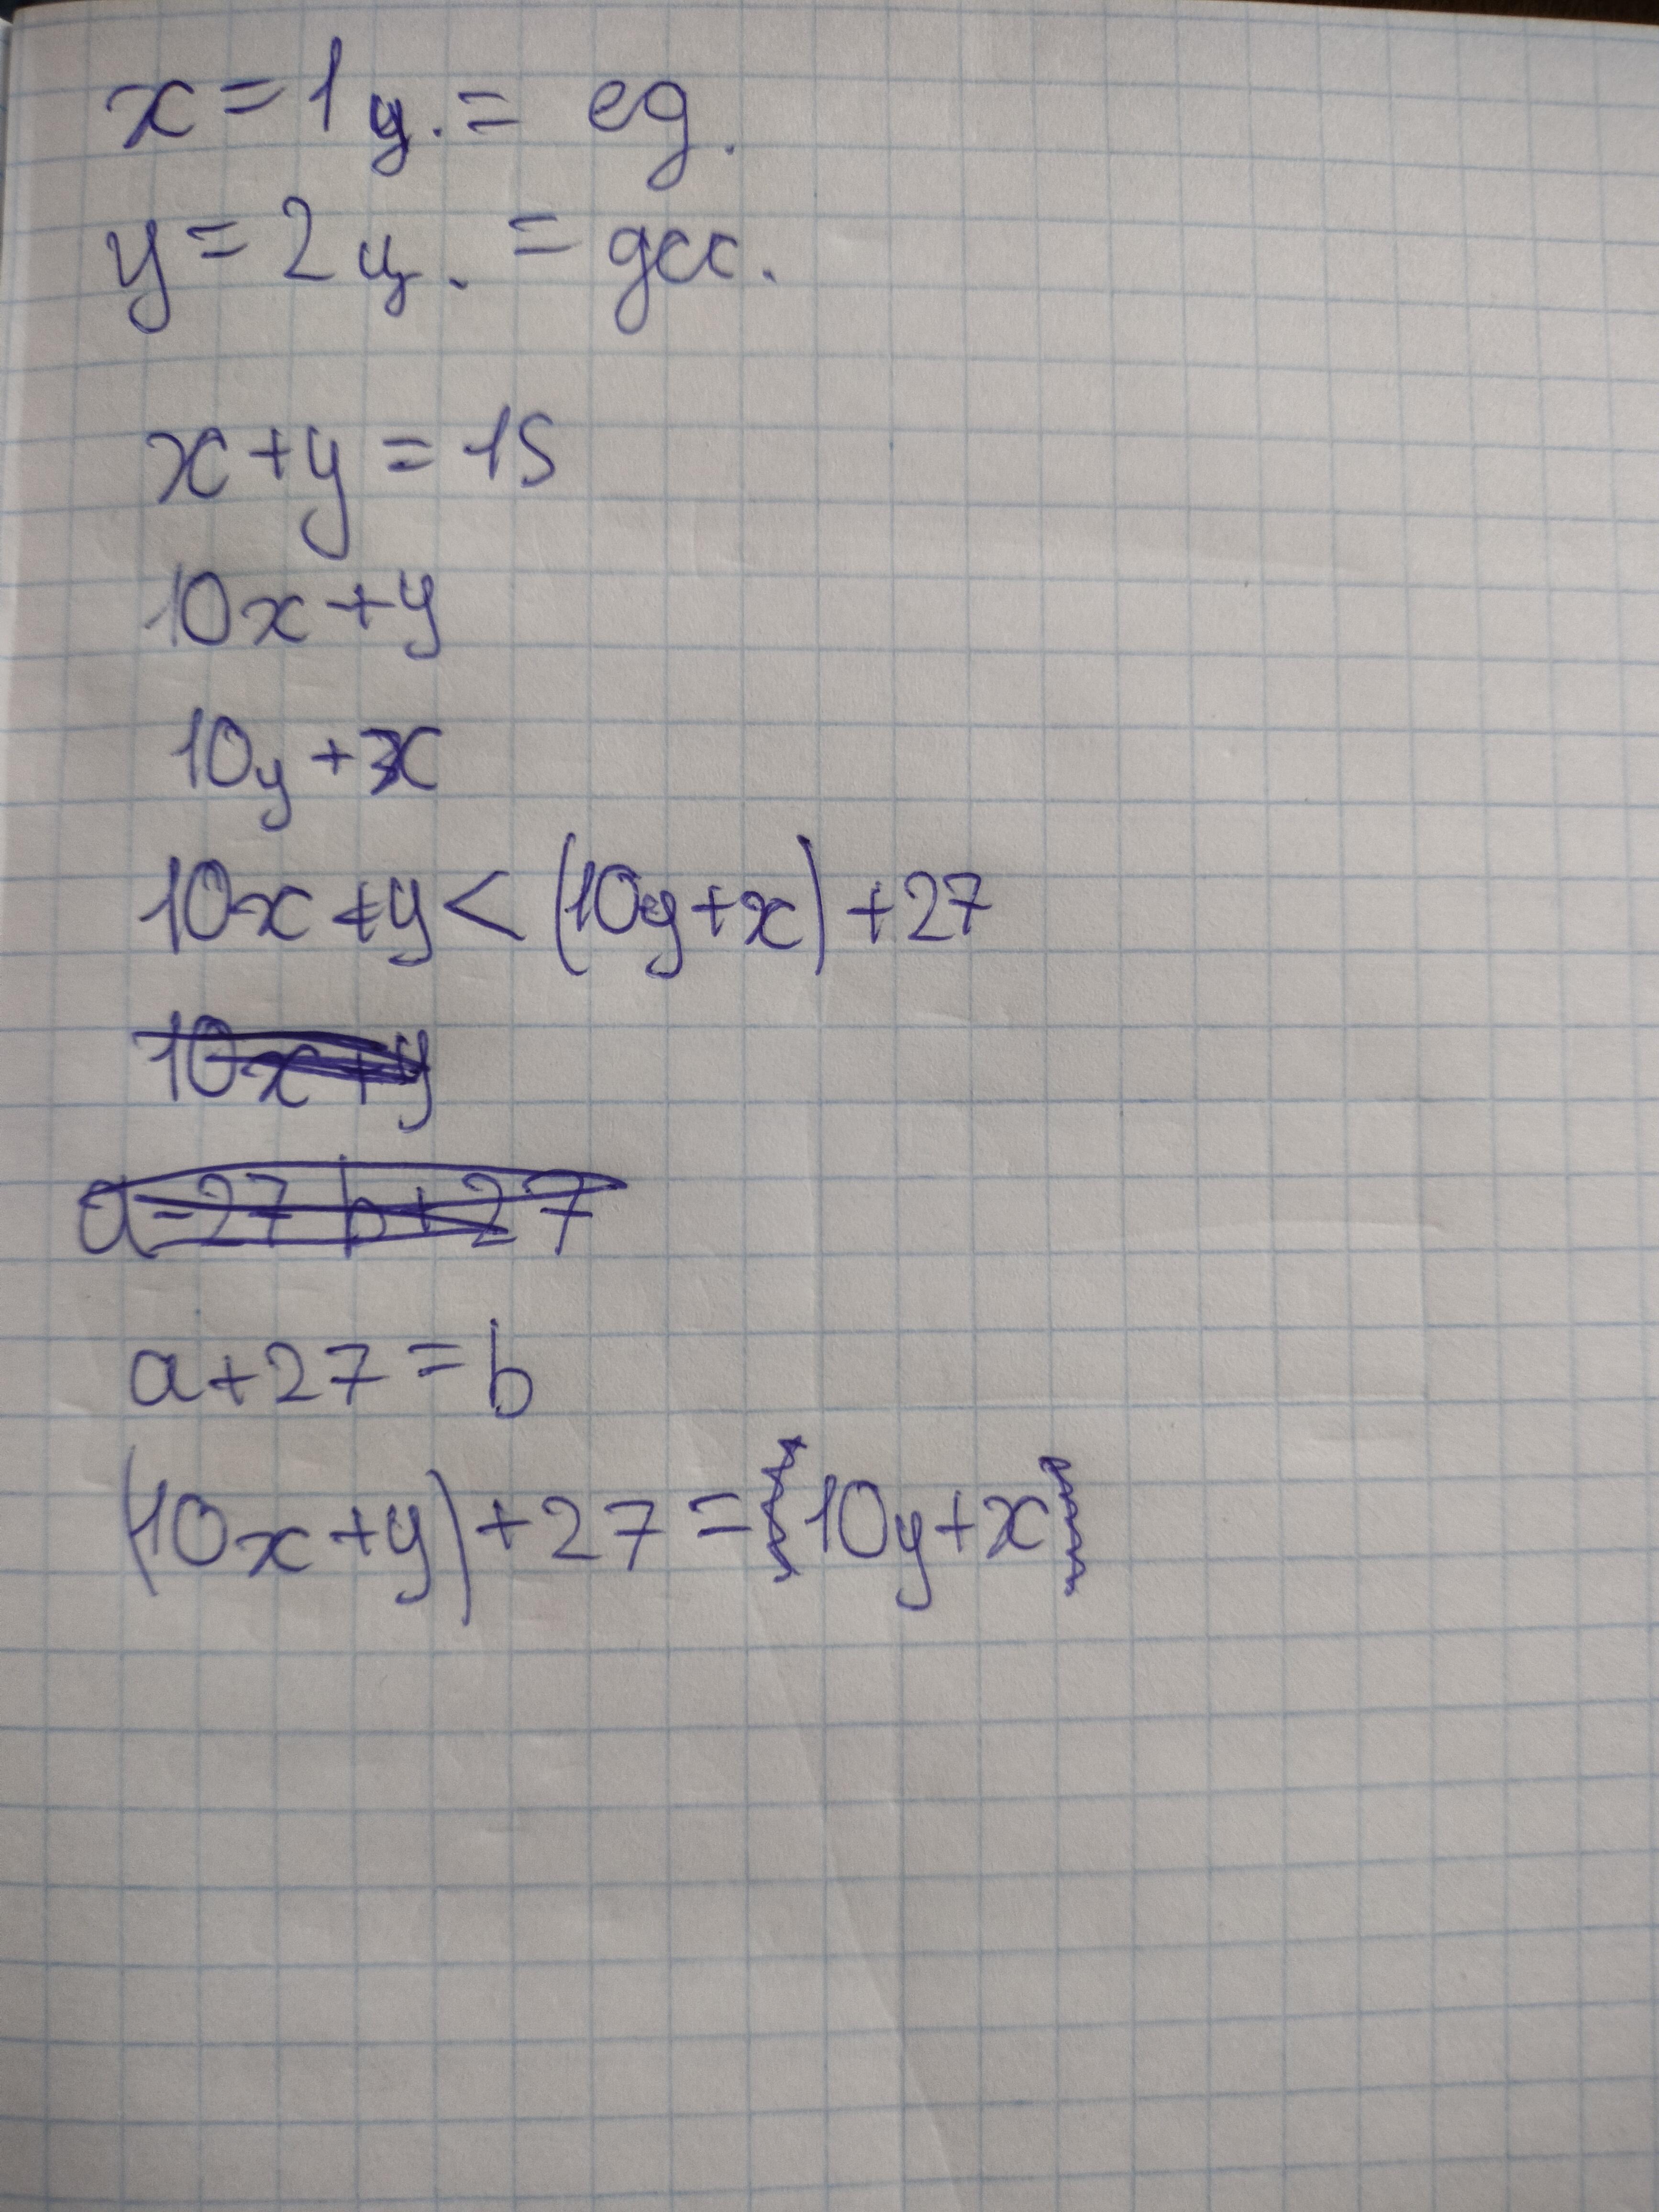 x = 1 ц. = ед.
y = 2 ц. = дес.
x + y = 15
10x + y
10y + x
10x + y < (10y + x) + 27
10x + y
a = 27 b + 27
a + 27 = b
(10x + y) + 27 = 10y + x